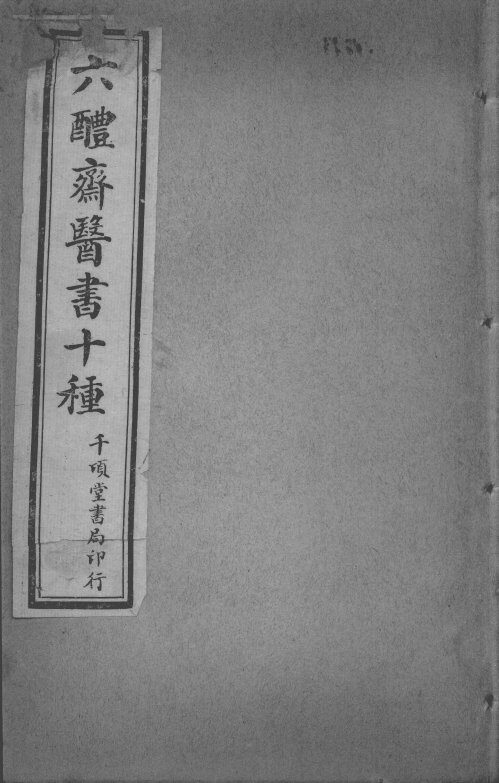 六醴齋醫書十種
千頃堂書局印行